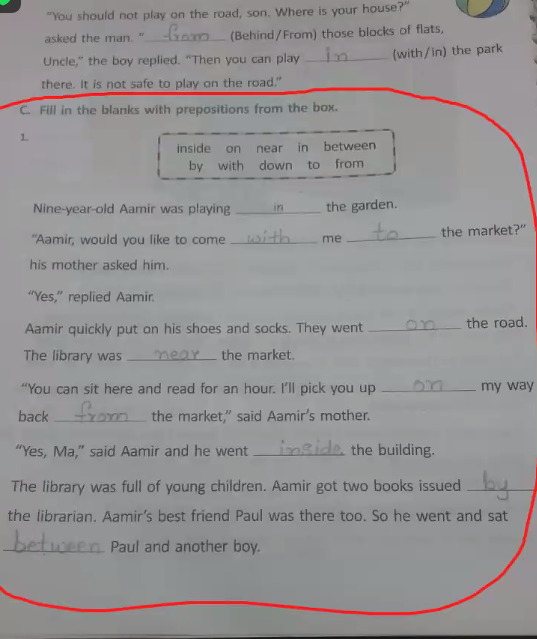 "You should not play on the road, son. Where is your house?"
asked the man. " from (Behind/From) those blocks of flats,
Uncle," the boy replied. "Then you can play in (with/in) the park
there. It is not safe to play on the road."
C. Fill in the blanks with prepositions from the box.
1.
inside on near in between
by with down to from
Nine-year-old Aamir was playing in the garden.
"Aamir, would you like to come with me to the market?"
his mother asked him.
"Yes," replied Aamir.
Aamir quickly put on his shoes and socks. They went on the road.
The library was near the market.
"You can sit here and read for an hour. I'll pick you up on my way
back from the market," said Aamir's mother.
"Yes, Ma," said Aamir and he went inside the building.
The library was full of young children. Aamir got two books issued by
the librarian. Aamir's best friend Paul was there too. So he went and sat
between Paul and another boy.